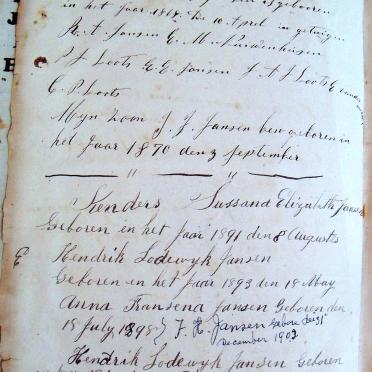 geboren
in het Jaar 1868 den 10 April in getuigen
A. t. Jansen E. M. Nieuwenhuisen
P J Loots E. E. Jansen J A J Loots
C. P. Loots
Myn Zoon J. J. Jansen ben geboren in
het Jaar 1870 den 3 September
Kenders Sussand Elizabeth Jansen
Geboren en het jaar 1891 den 8 Augustes
Hendrik Lodewyk Jansen
Geboren en het jaar 1893 den 18 May
Anna Fransena Jansen Geboren den
18 July 1898 J. H. Jansen Gebore Des 31
December 1902
Hendrik Lodewyk Jansen Geboren